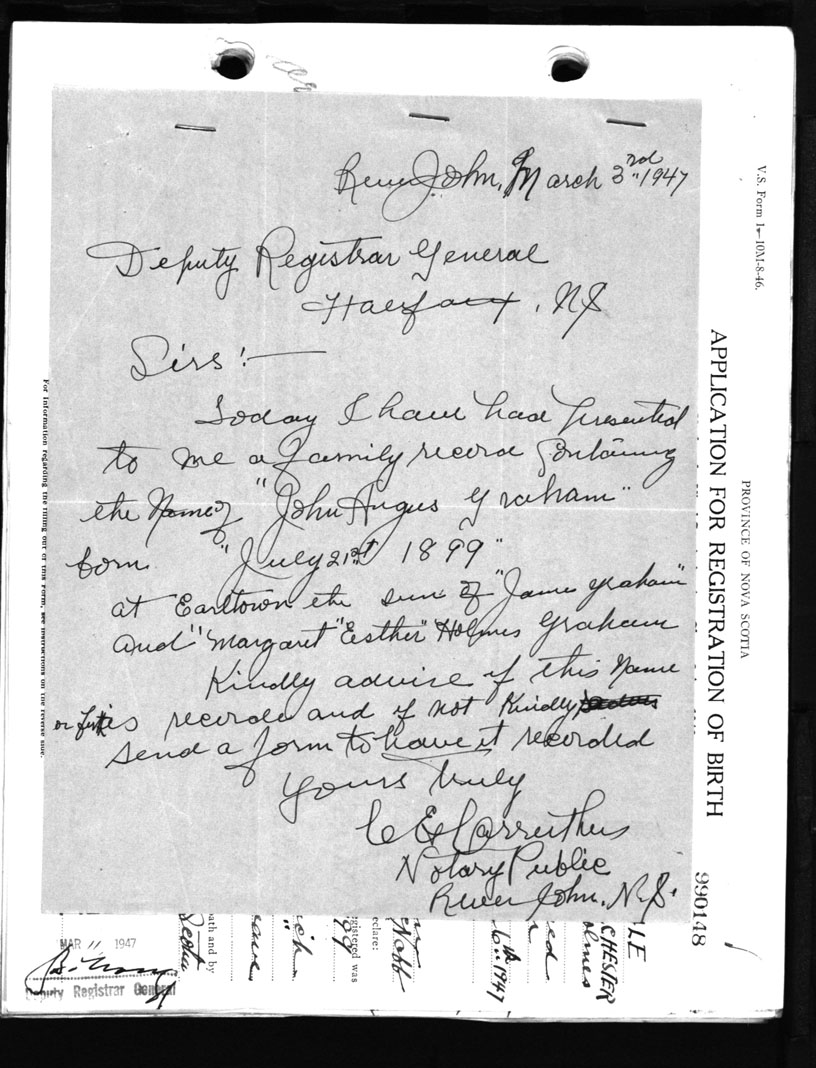 River John, March 3rd 1947
Deputy Registrar General
Halifax, NS
Sirs:—
Today I have had presented
to me a family record containing
the Name of "John Angus Graham"
born "July 21st 1899"
at Earltown the son of "James Graham"
and "Margaret "Esther" Holmes Graham
Kindly advise if this Name
is recorded and if not Kindly
send a form to have it recorded
Yours Truly
C E Carruthers
Notary Public
River John, N.S.
V.S. Form 1—10M-8-46.
PROVINCE OF NOVA SCOTIA
APPLICATION FOR REGISTRATION OF BIRTH
990148
For information regarding the filling out of this form, see instructions on the reverse side.
MAR 11 1947
Deputy Registrar General
ath and by
Scotia
gistered was
eclare:
1947
LE
CHESTER
olmes